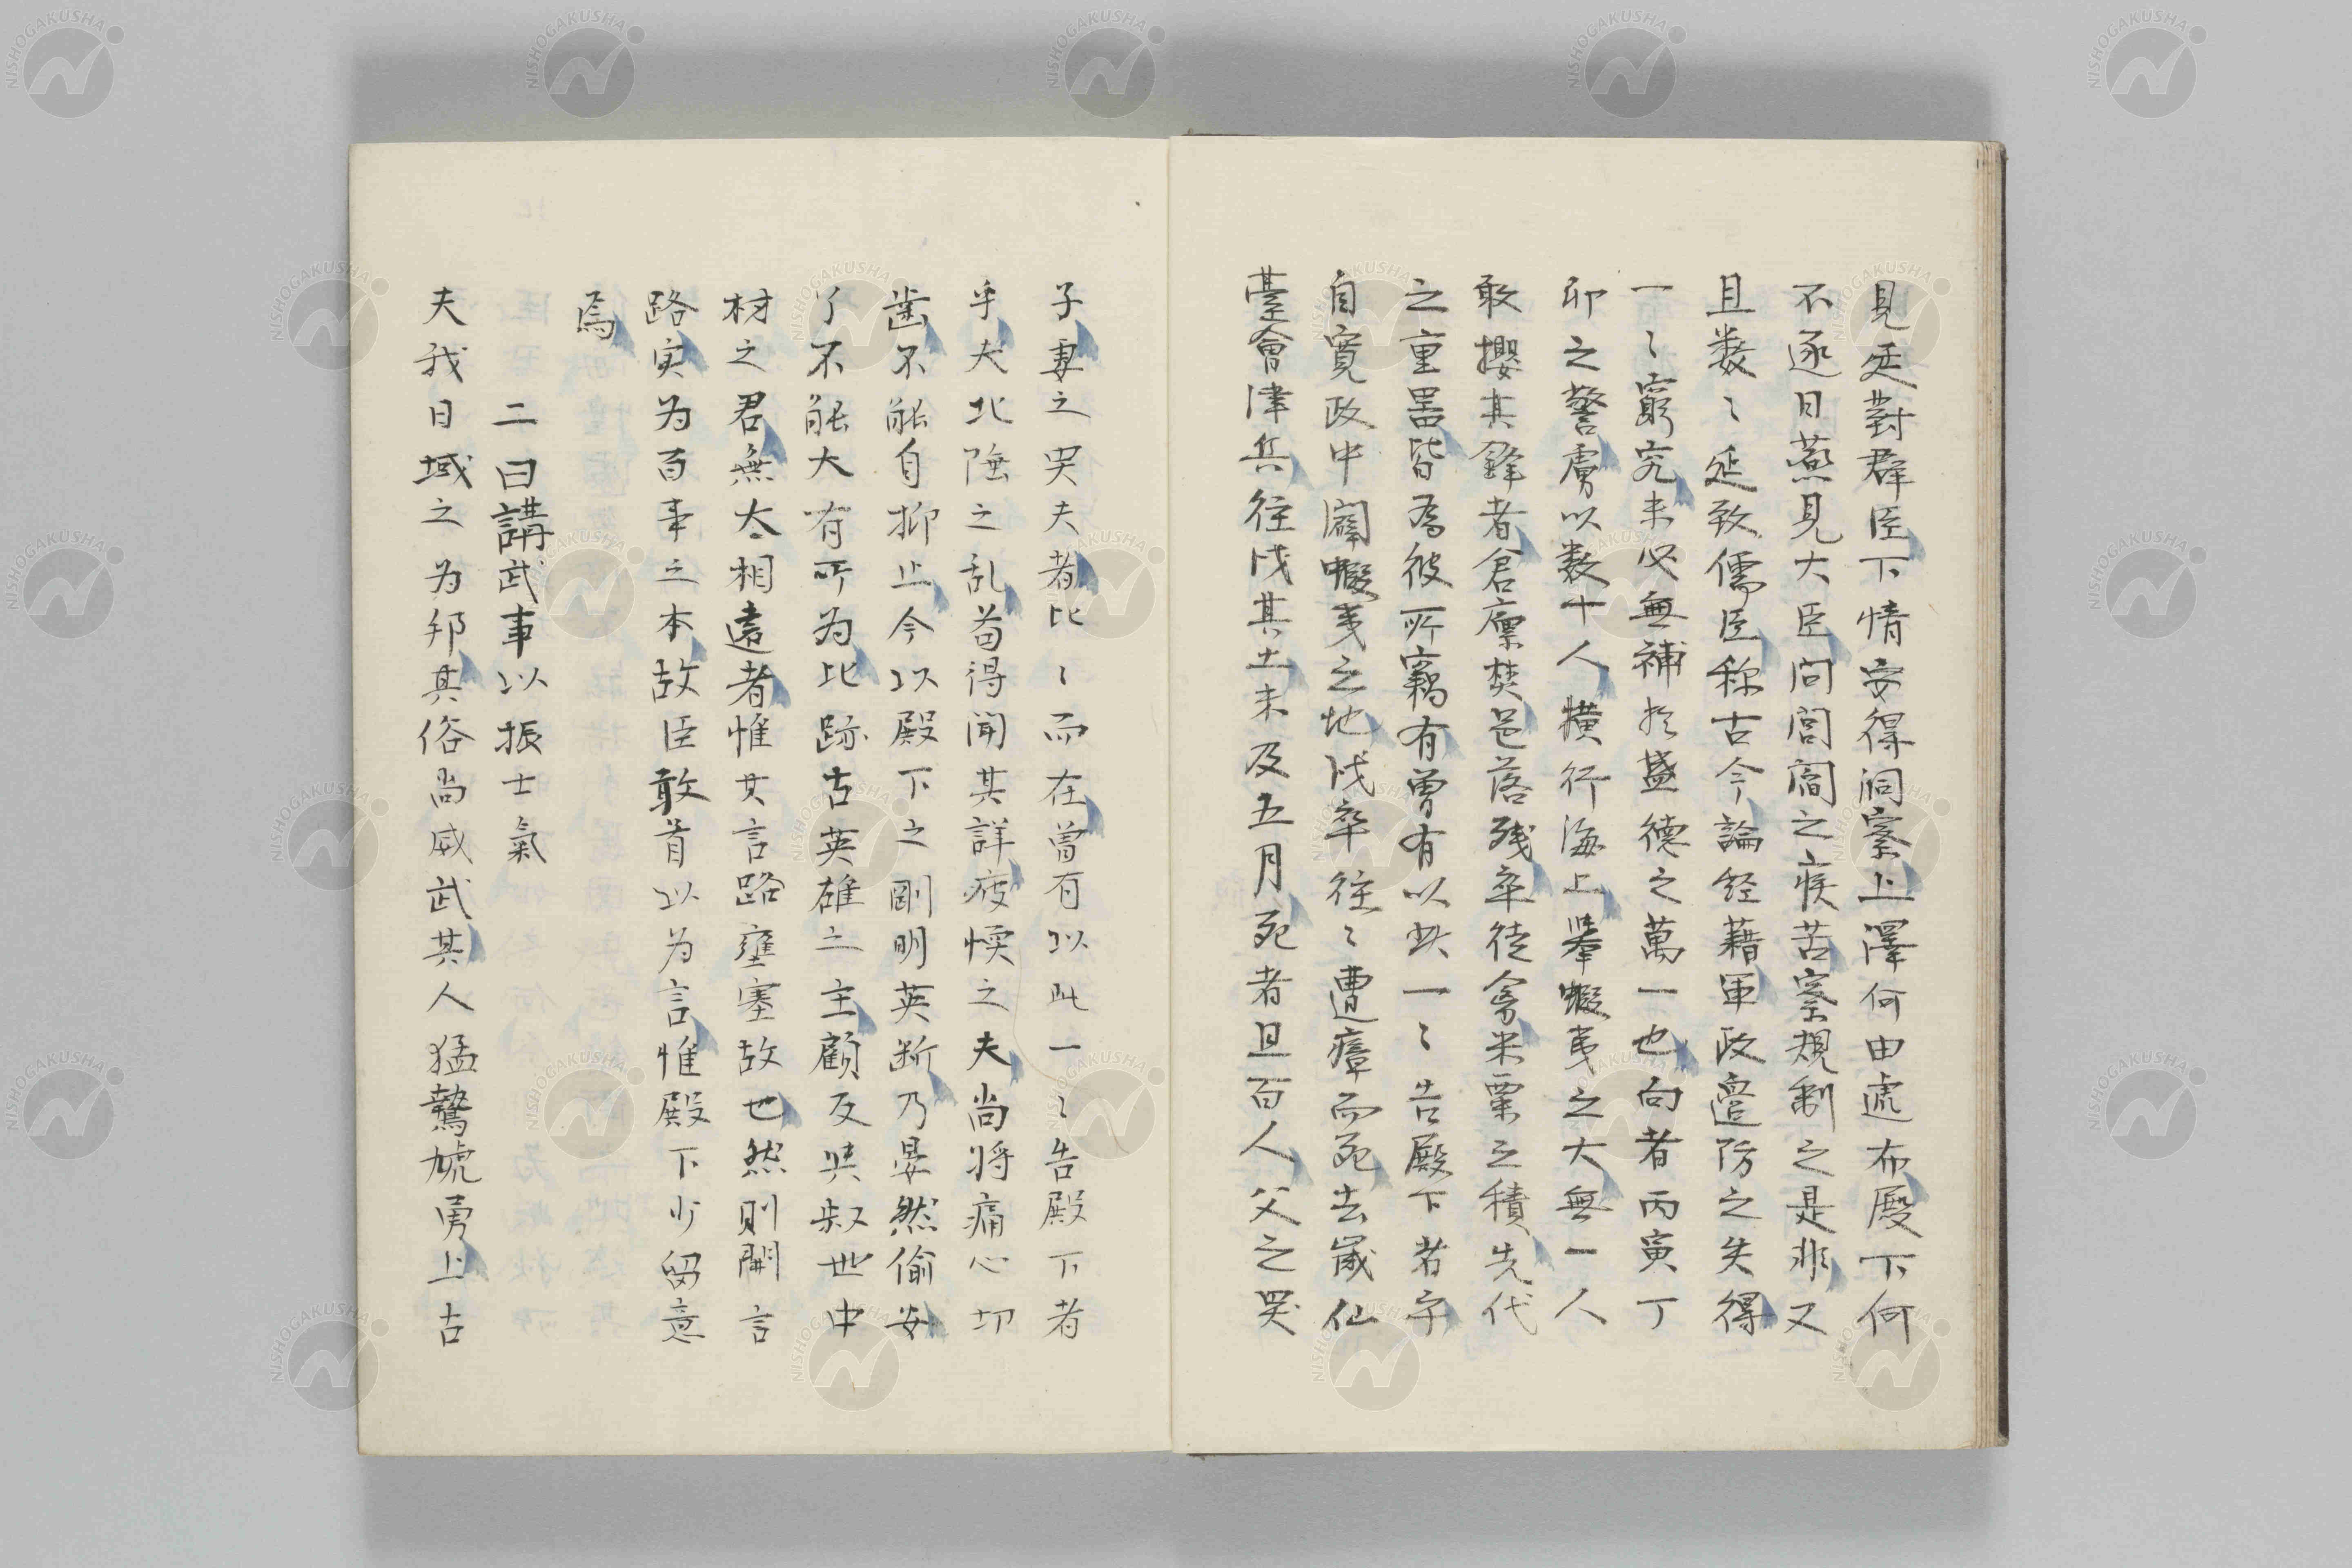 見延對群臣下情安得洞察上澤何由處布殿下何
不逐日燕見大臣問閭閻之疾苦察規制之是非又
且数〻延致儒臣称古今論経藉軍政邉防之失得
一〻窮究未必無補於盛德之萬一也向者丙寅丁
卯之警虜以数十人横行海上擧蝦夷之大無一人
敢攖其鋒者倉廩焚邑落残卒徒禽米粟之積先代
之重噐皆為彼所竊有曽有以此一〻告殿下者乎
自寛政中闢蝦夷之地戍卒徃〻遭瘴而死去嵗仙
臺會津兵徃戍其土未及五月死者且百人父之哭
子妻之哭夫者比〻而在曽有以此一〻告殿下者
乎夫北陲之乱苟得聞其詳疲愞之夫尚将痛心切
歯不能自抑止今以殿下之剛明英断乃晏然偷安
了不能大有所为比跡古英雄之主顧反与叔世中
材之君無太相遠者惟其言路壅塞故也然則開言
路実为百事之本故臣敢首以为言惟殿下少留意
焉
二曰講武事以振士氣
夫我日域之为邦其俗尚威武其人猛驁虓勇上古